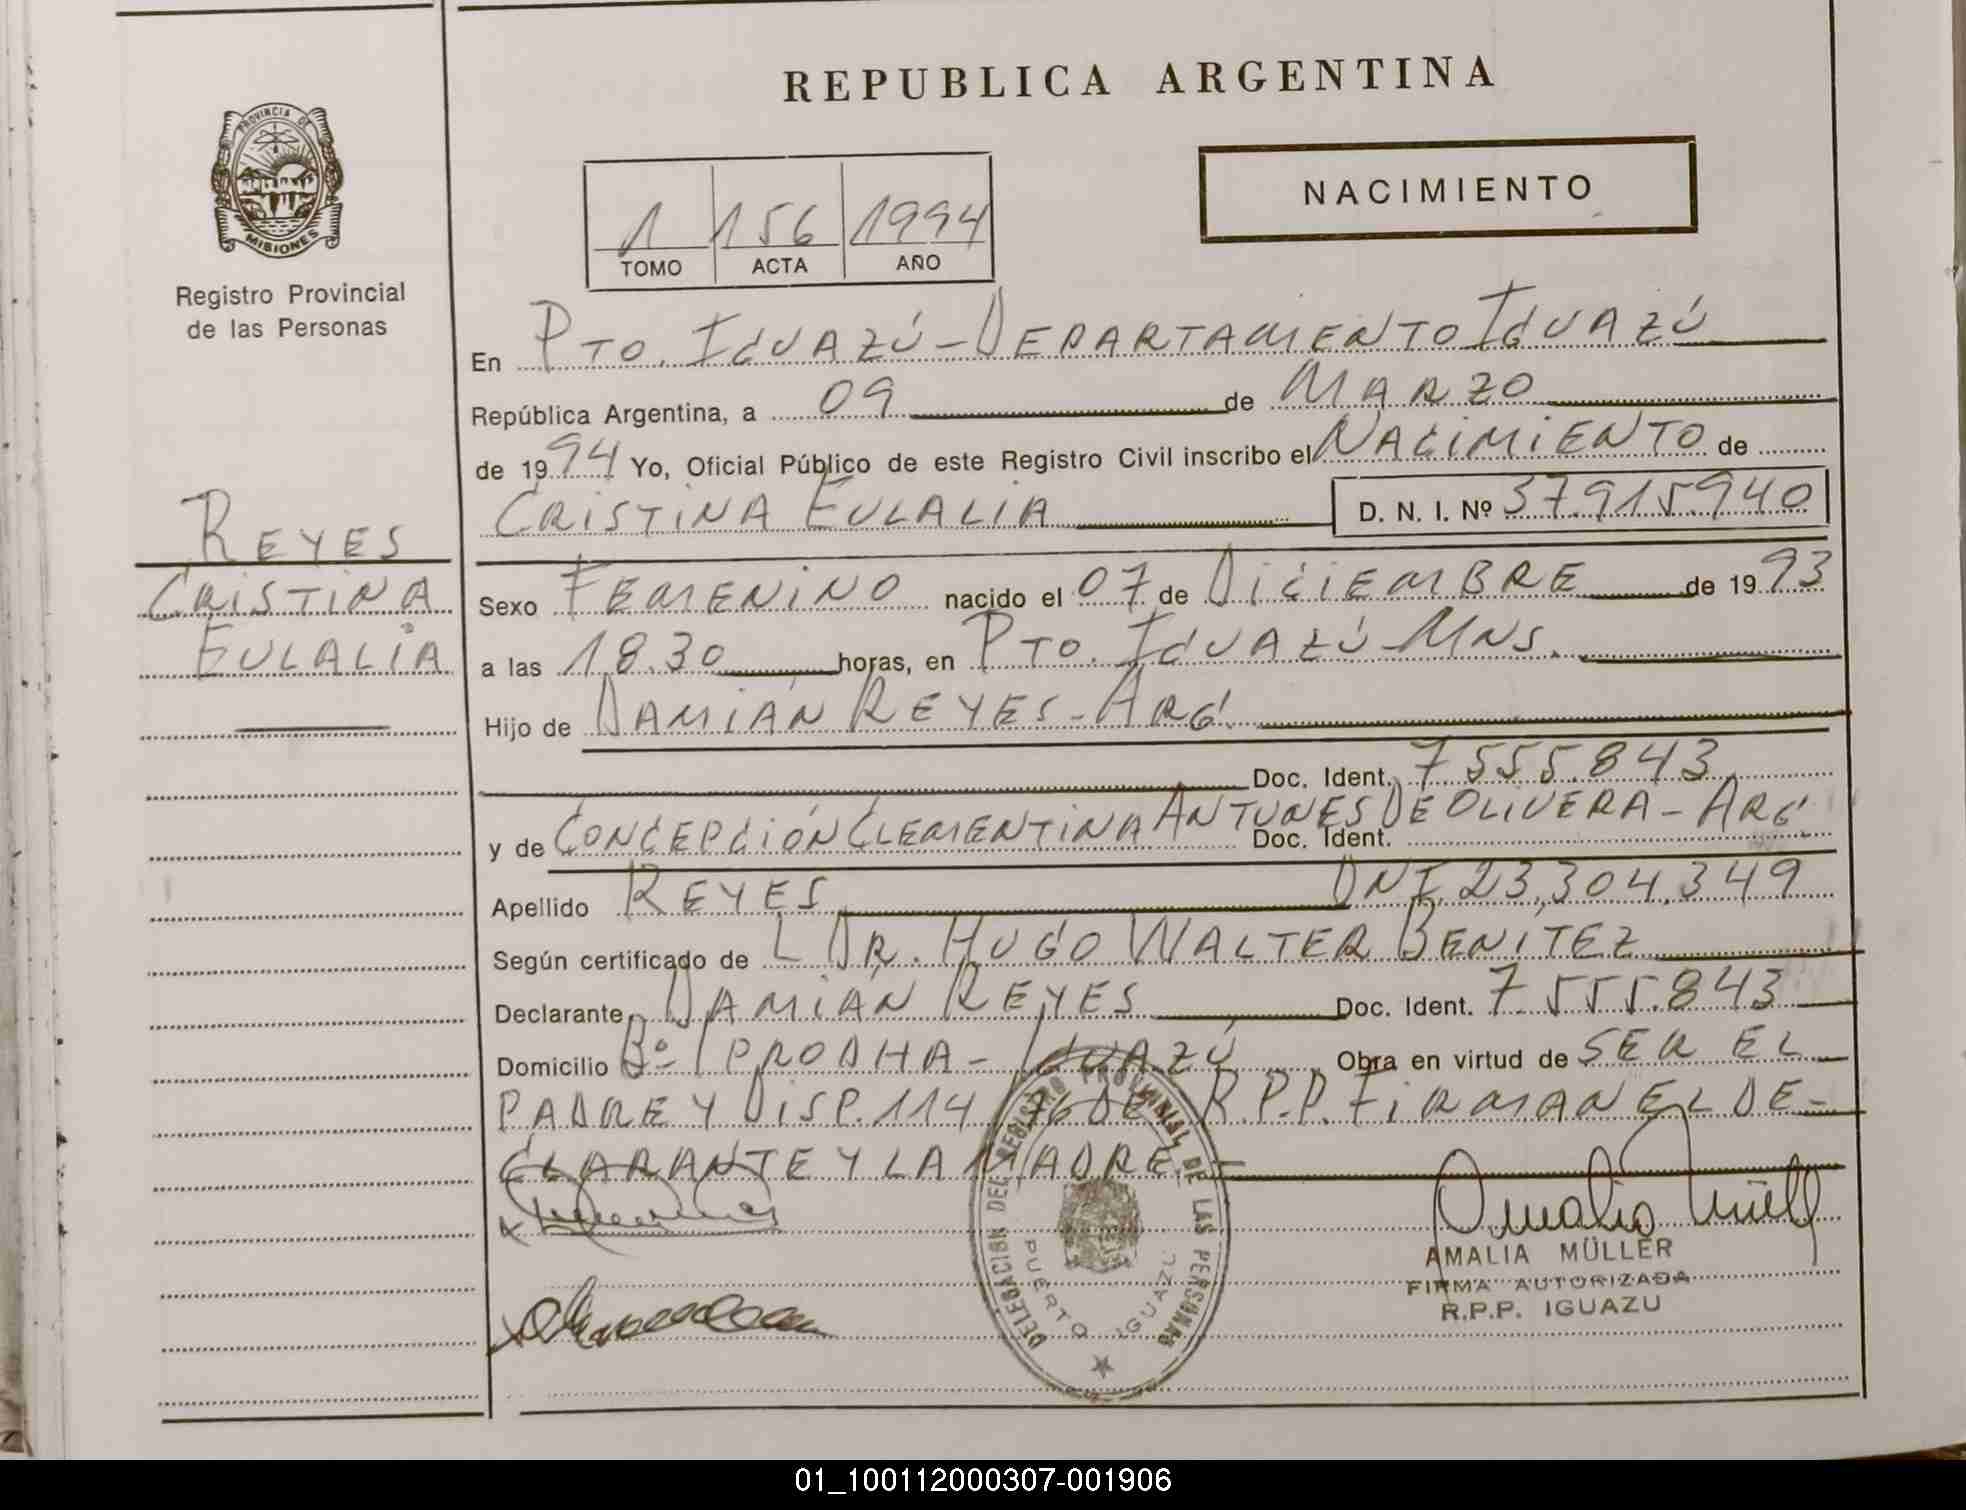 REPUBLICA ARGENTINA
PROVINCIA DE
MISIONES
Registro Provincial
de las Personas
NACIMIENTO
1 156 1994
TOMO ACTA AÑO
En PTO. IGUAZÚ - DEPARTAMENTO IGUAZÚ
República Argentina, a 09 de MARZO
de 1994 Yo, Oficial Público de este Registro Civil inscribo el NACIMIENTO de
CRISTINA EULALIA D. N. I. Nº 37.915.940
REYES
CRISTINA
EULALIA
Sexo FEMENINO nacido el 07 de DICIEMBRE de 1993
a las 18.30 horas, en PTO. IGUAZÚ - MNS.
Hijo de DAMIÁN REYES - ARG.
Doc. Ident. 7555.843
y de CONCEPCIÓN CLEMENTINA ANTUNES DE OLIVERA - ARG.
Doc. Ident.
Apellido REYES DNI. 23.304.349
Según certificado de L DR. HUGO WALTER BENÍTEZ
Declarante DAMIÁN REYES Doc. Ident. 7555.843
Domicilio Bº IPRODHA - IGUAZÚ Obra en virtud de SER EL
PADRE Y DISP. 114 76 DE R.P.P. FIRMAN EL DE-
CLARANTE Y LA MADRE.
DELEGACION DEL REGISTRO PROVINCIAL DE LAS PERSONAS
PUERTO IGUAZU
Amalia Müller
AMALIA MÜLLER
FIRMA AUTORIZADA
R.P.P. IGUAZU
01_100112000307-001906